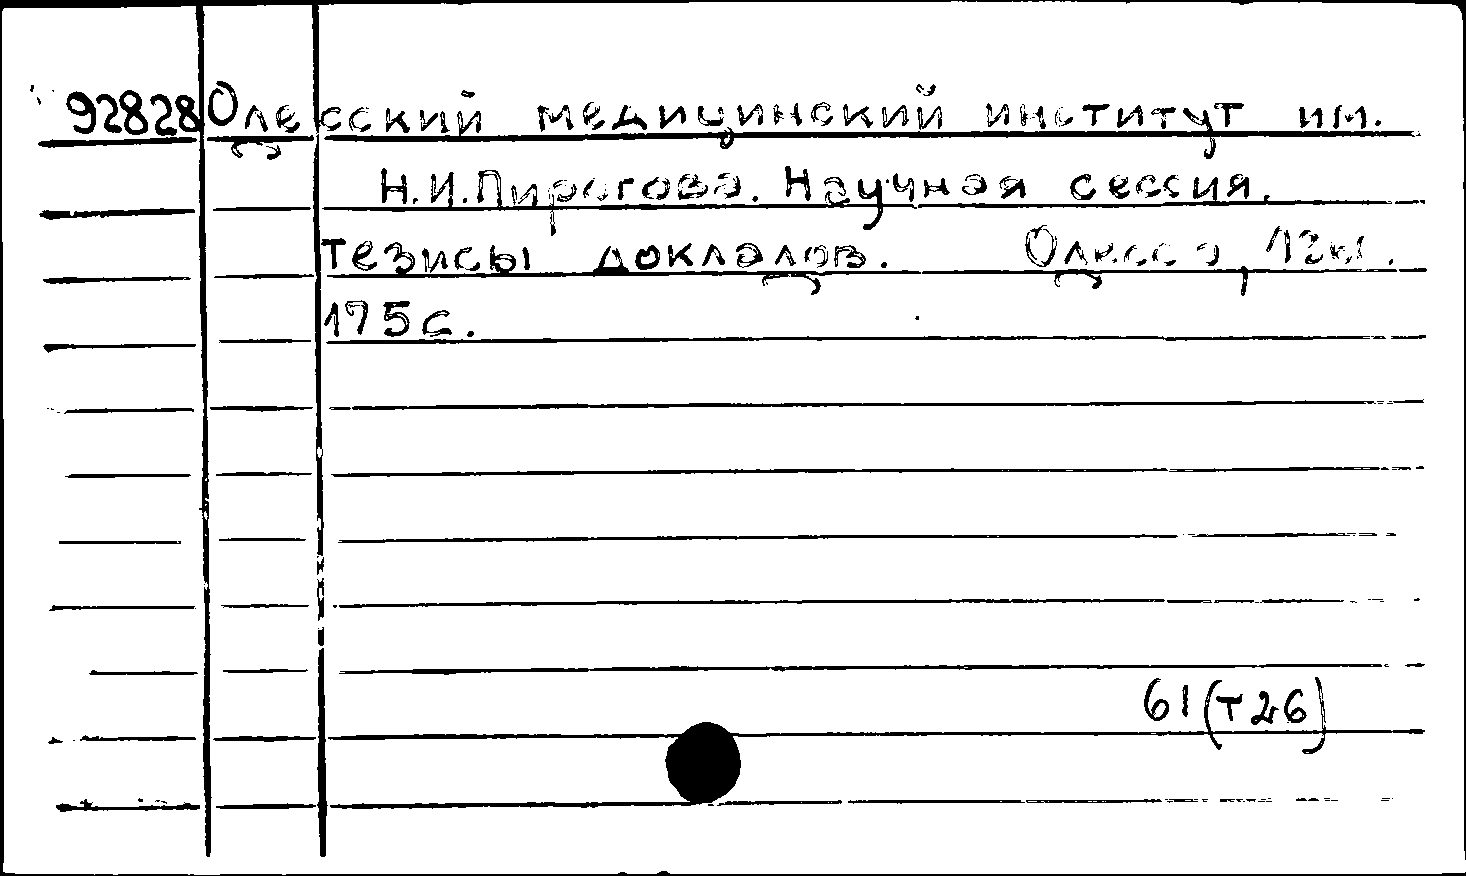 92828 Одесский медицинский институт им.
Н.И.Пирогова. Научная сессия.
тезисы докладов. Одесса,
175с.
61(Т26)